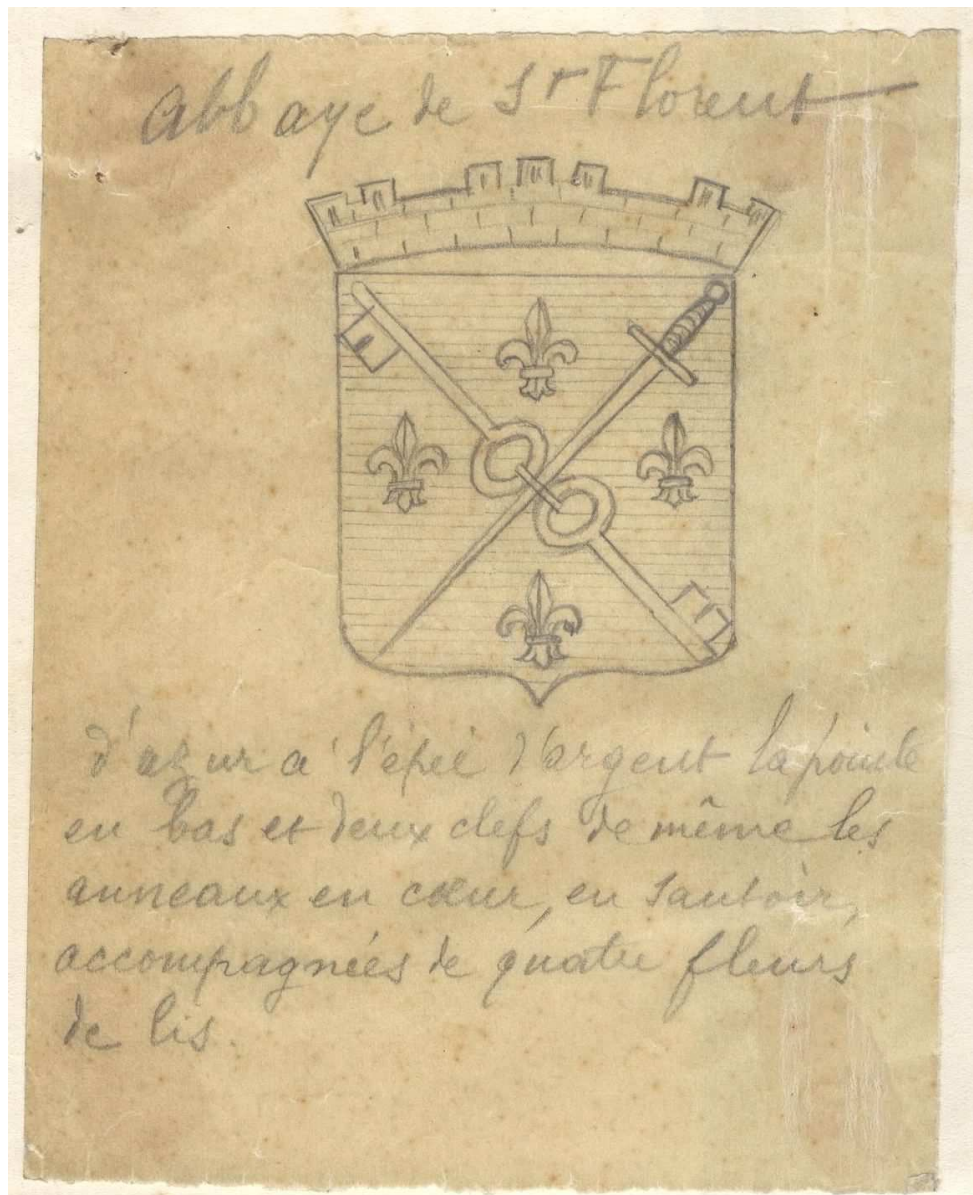 Abbaye de St Florent
d'azur a l'épée d'argent la pointe
en bas et deux clefs de même les
anneaux en cœur, en sautoir,
accompagnées de quatre fleurs
de lis.